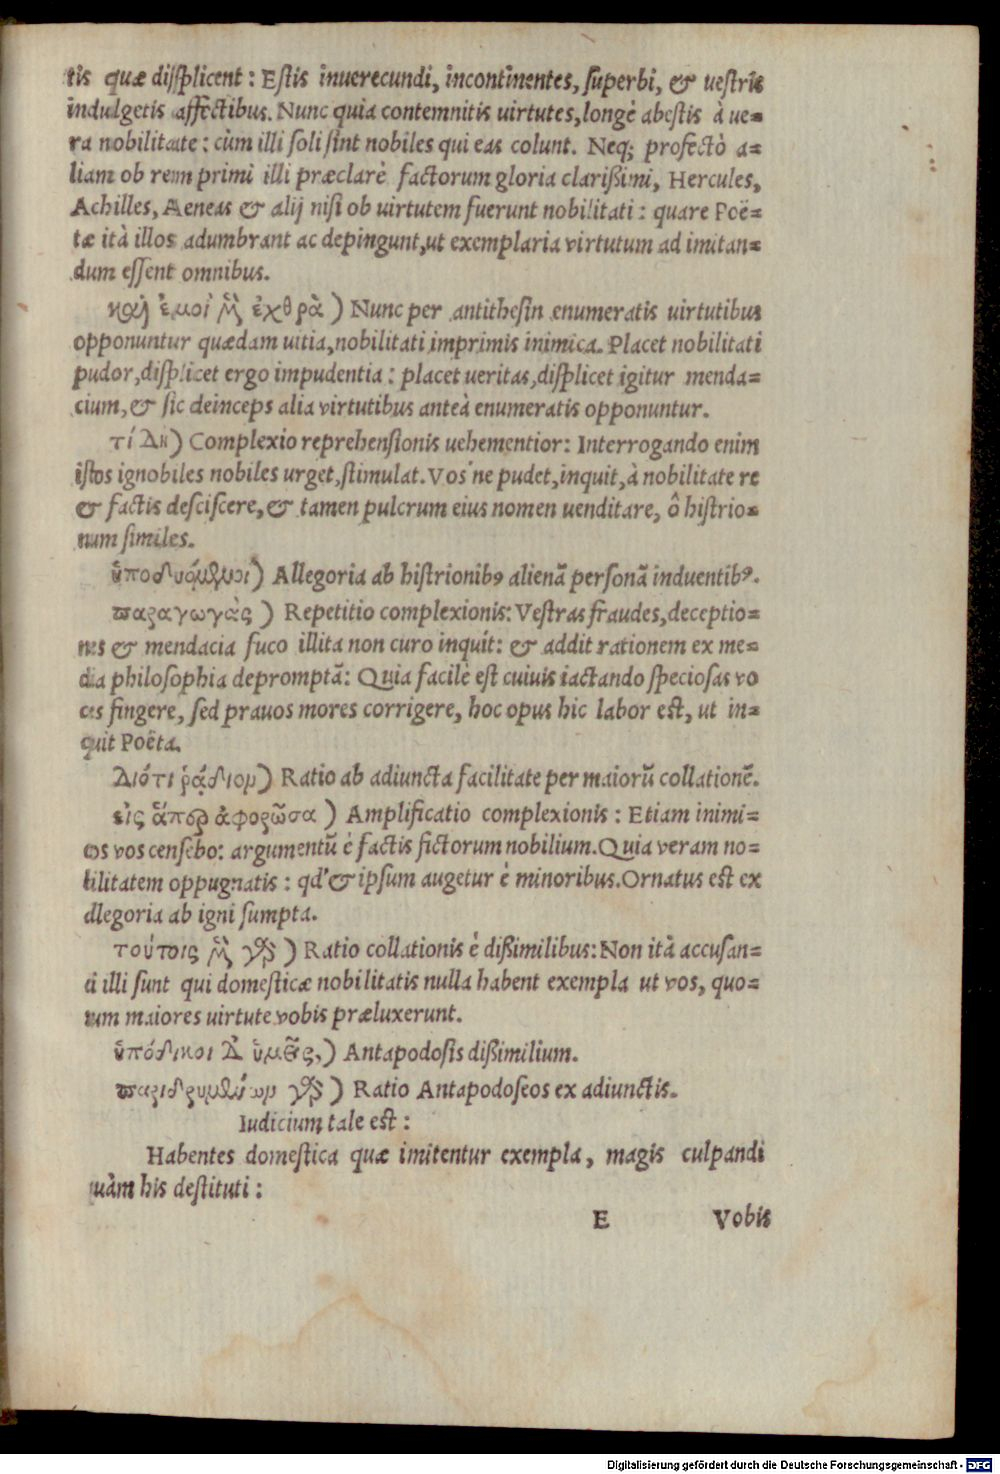 tis quæ displicent: Estis inuerecundi, incontinentes, superbi, & vestris
indulgetis affectibus. Nunc quia contemnitis uirtutes, longè abestis à ue=
ra nobilitate: cùm illi soli sint nobiles qui eas colunt. Neq; profectò a=
liam ob rem primi illi præclarè factorum gloria clarißimi, Hercules,
Achilles, Aeneas & alij nisi ob uirtutem fuerunt nobilitati: quare Poë=
tæ ità illos adumbrant ac depingunt, ut exemplaria virtutum ad imitan=
dum essent omnibus.
καὶ ἐμοὶ μὲν ἐχθρὰ) Nunc per antithesin enumeratis uirtutibus
opponuntur quædam uitia, nobilitati imprimis inimica. Placet nobilitati
pudor, displicet ergo impudentia: placet ueritas, displicet igitur menda=
cium, & sic deinceps alia virtutibus anteà enumeratis opponuntur.
τί δή) Complexio reprehensionis uehementior: Interrogando enim
istos ignobiles nobiles urget, stimulat. Vos'ne pudet, inquit, à nobilitate re
& factis desciscere, & tamen pulcrum eius nomen uenditare, ô histrio=
num similes.
ὑποδυόμενοι) Allegoria ab histrionibꝰ alienã personã induentibꝰ.
παραγωγὰς) Repetitio complexionis: Vestras fraudes, deceptio=
nes & mendacia fuco illita non curo inquit: & addit rationem ex me=
dia philosophia depromptã: Quia facilè est cuiuis iactando speciosas vo
ces fingere, sed prauos mores corrigere, hoc opus hic labor est, ut in=
quit Poëta.
Διότι ῥᾴδιον) Ratio ab adiuncta facilitate per maiorũ collationẽ.
εἰς ἅπερ ἀφορῶσα) Amplificatio complexionis: Etiam inimi=
cos vos censebo: argumentũ è factis fictorum nobilium. Quia veram no=
bilitatem oppugnatis: qd' & ipsum augetur è minoribus. Ornatus est ex
allegoria ab igni sumpta.
τούτοις μὲν γὰρ) Ratio collationis è dißimilibus: Non ità accusan=
di illi sunt qui domesticæ nobilitatis nulla habent exempla ut vos, quo=
rum maiores uirtute vobis præluxerunt.
ὑπόδικοι δ' ὑμεῖς,) Antapodosis dißimilium.
παριδρυμένων γὰρ) Ratio Antapodoseos ex adiunctis.
Iudicium tale est:
Habentes domestica quæ imitentur exempla, magis culpandi
quàm his destituti:
E Vobis
Digitalisierung gefördert durch die Deutsche Forschungsgemeinschaft - DFG